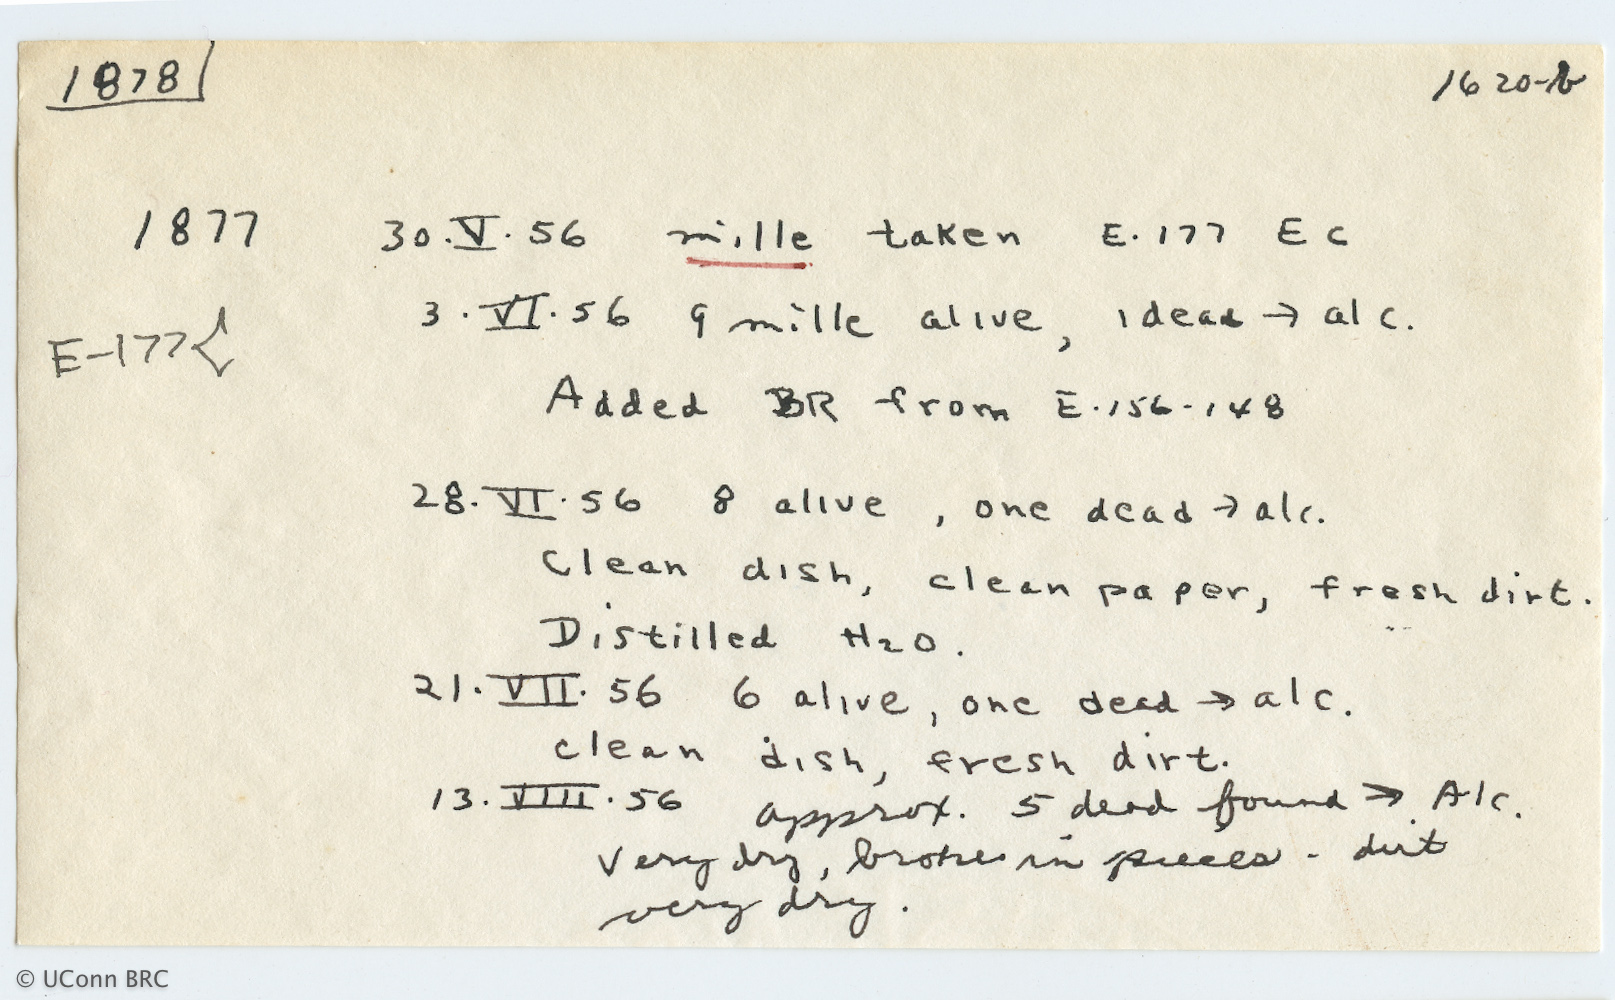 1878
1620-b
1877 30.V.56 mille taken E.177 Ec
3.VI.56 9 mille alive, 1 dead → alc.
E-177
Added BR from E.156-148
28.VI.56 8 alive, one dead → alc.
Clean dish, clean paper, fresh dirt.
Distilled H2O.
21.VII.56 6 alive, one dead → alc.
clean dish, fresh dirt.
13.VIII.56 approx. 5 dead found → Alc.
Very dry, broken in pieces - dirt
very dry.
© UConn BRC